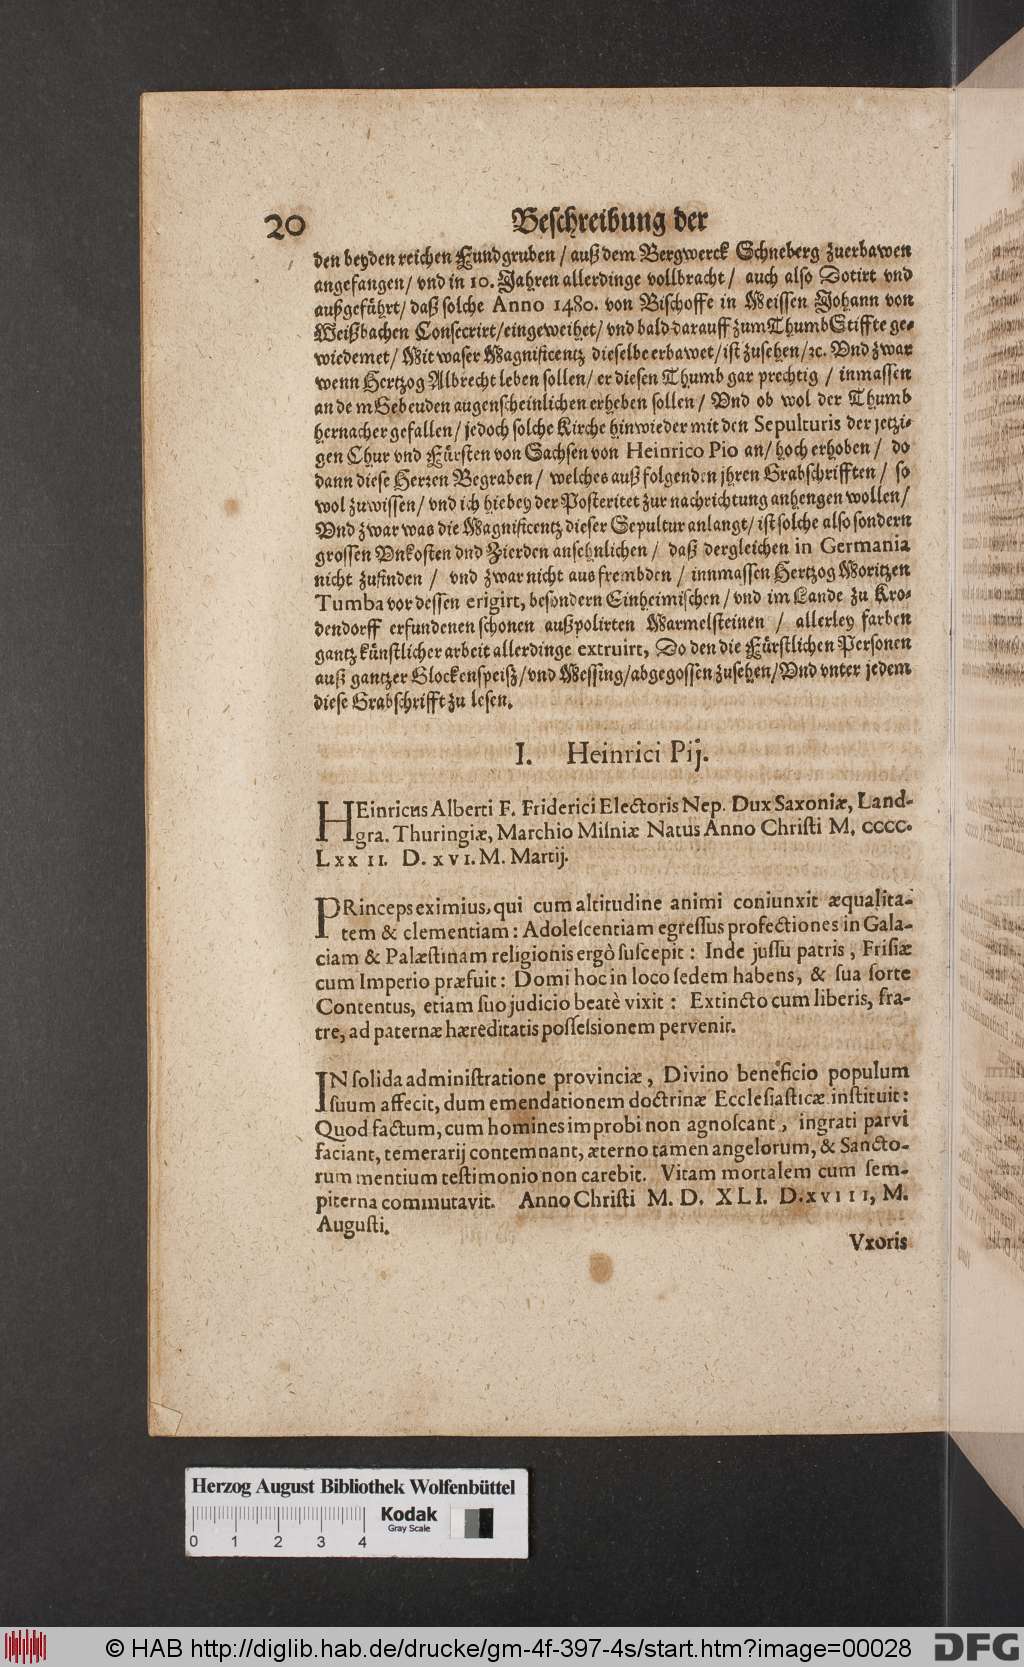 20 Beschreibung der
den beyden reichen Fundgruben / auß dem Bergwerck Schneberg zuerbawen
angefangen / vnd in 10. Jahren allerdinge vollbracht / auch also Dotirt vnd
außgeführt / daß solche Anno 1480. von Bischoffe in Meissen Johann von
Weißbachen Consecrirt / eingeweihet / vnd bald darauff zum Thumb Stiffte ge-
wiedemet / Mit waser Magnificentz dieselbe erbawet / ist zusehen / ꝛc. Vnd zwar
wenn Hertzog Albrecht leben sollen / er diesen Thumb gar prechtig / inmassen
an de m Gebeuden augenscheinlichen erheben sollen / Vnd ob wol der Thumb
hernacher gefallen / jedoch solche Kirche hinwieder mit den Sepulturis der jetzi-
gen Chur vnd Fürsten von Sachsen von Heinrico Pio an / hoch erhoben / do
dann diese Herren Begraben / welches auß folgenden jhren Grabschrifften / so
wol zuwissen / vnd ich hiebey der Posteritet zur nachrichtung anhengen wollen /
Vnd zwar was die Magnificentz dieser Sepultur anlangt / ist solche also sondern
grossen Vnkosten vnd Zierden ansehnlichen / daß dergleichen in Germania
nicht zufinden / vnd zwar nicht aus frembden / innmassen Hertzog Moritzen
Tumba vor dessen erigirt, besondern Einheimischen / vnd im Lande zu Kro-
dendorff erfundenen schonen außpolirten Marmelsteinen / allerley farben
gantz künstlicher arbeit allerdinge extruirt, Do den die Fürstlichen Personen
auß gantzer Glockenspeiß / vnd Messing / abgegossen zusehen / Vnd vnter jedem
diese Grabschrifft zu lesen.
I. Heinrici Pij.
HEinricus Alberti F. Friderici Electoris Nep. Dux Saxoniæ, Land-
gra. Thuringiæ, Marchio Misniæ Natus Anno Christi M. CCCC.
LXXII. D. XVI. M. Martij.
PRinceps eximius, qui cum altitudine animi coniunxit æqualita-
tem & clementiam: Adolescentiam egressus profectiones in Gala-
ciam & Palæstinam religionis ergò suscepit: Inde jussu patris, Frisiæ
cum Imperio præfuit: Domi hoc in loco sedem habens, & sua sorte
Contentus, etiam suo judicio beatè vixit: Extincto cum liberis, fra-
tre, ad paternæ hæreditatis possessionem pervenit.
IN solida administratione provinciæ, Divino beneficio populum
suum affecit, dum emendationem doctrinæ Ecclesiasticæ instituit:
Quod factum, cum homines improbi non agnoscant, ingrati parvi
faciant, temerarij contemnant, æterno tamen angelorum, & Sancto-
rum mentium testimonio non carebit. Vitam mortalem cum sem-
piterna commutavit. Anno Christi M. D. XLI. D. XVIII, M.
Augusti.
Vxoris
Herzog August Bibliothek Wolfenbüttel
Kodak
Gray Scale
0 1 2 3 4
© HAB http://diglib.hab.de/drucke/gm-4f-397-4s/start.htm?image=00028
DFG